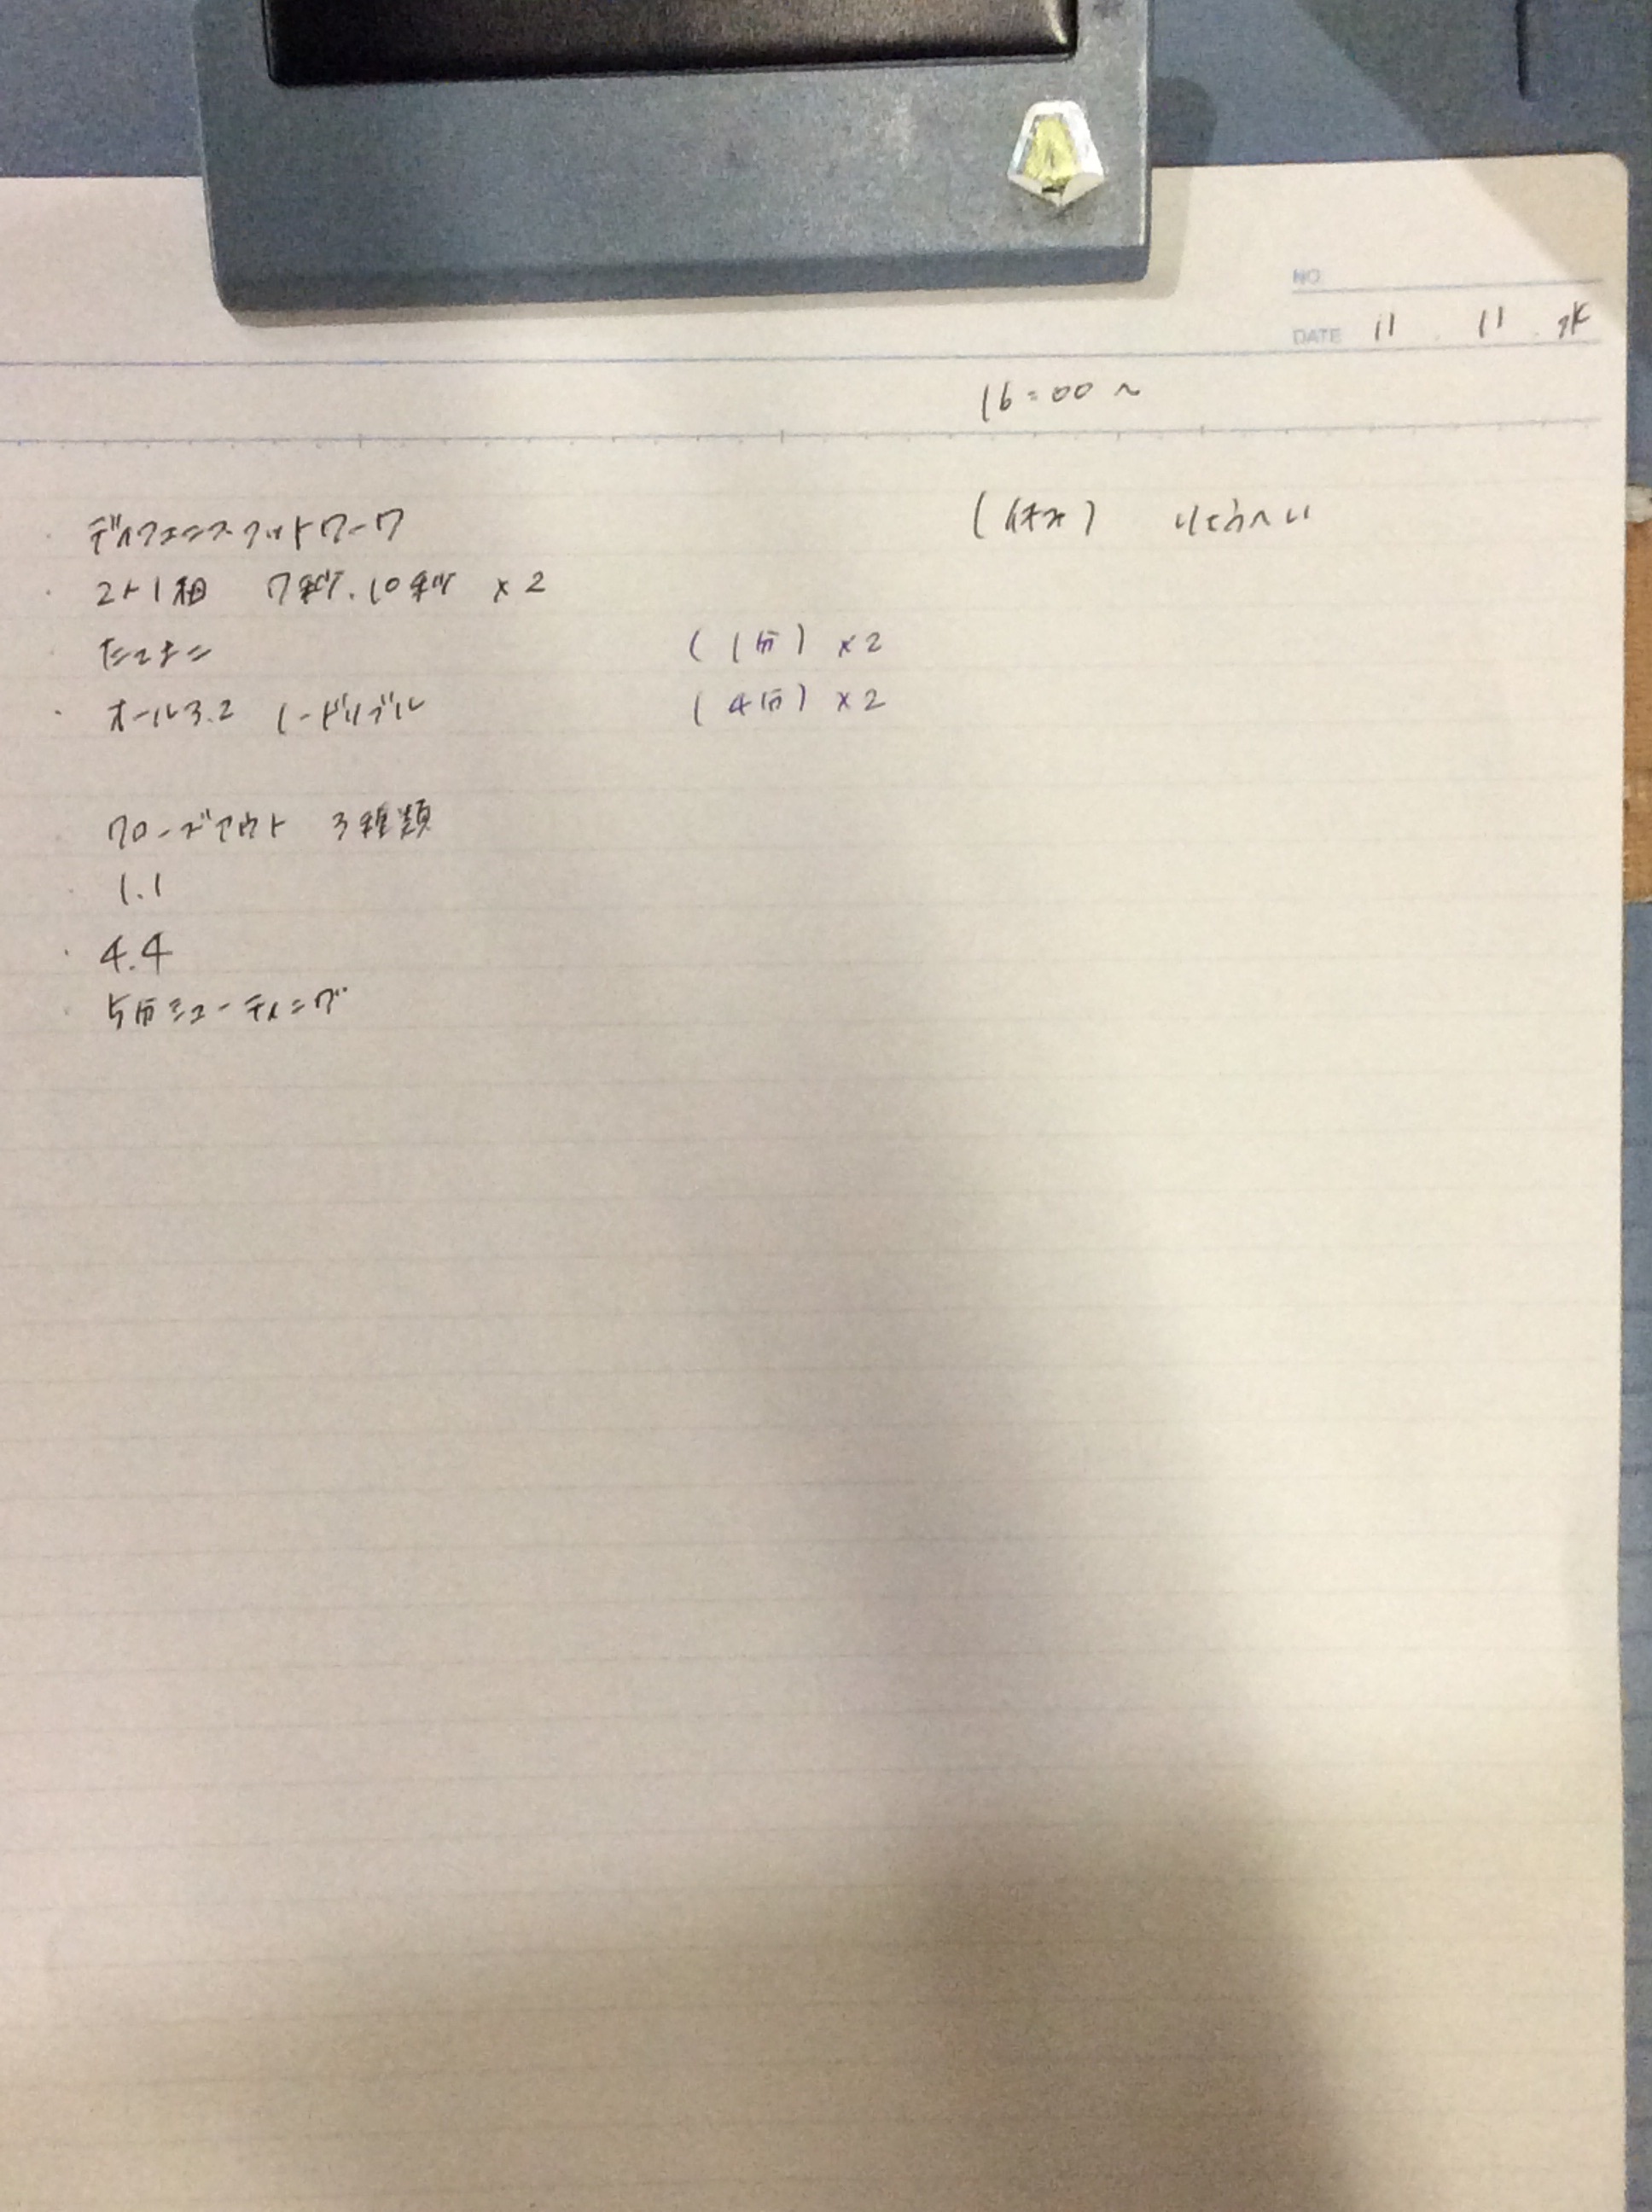 NO
DATE 11 . 11 . 水
16:00 ~
・ディフェンスフットワーク (休み) りょうへい
・2人1組 7秒.10秒 ×2
・ (1分) ×2
・オール3.2 ノードリブル (4分) ×2
クローズアウト 3種類
・1.1
・4.4
・5分シューティング